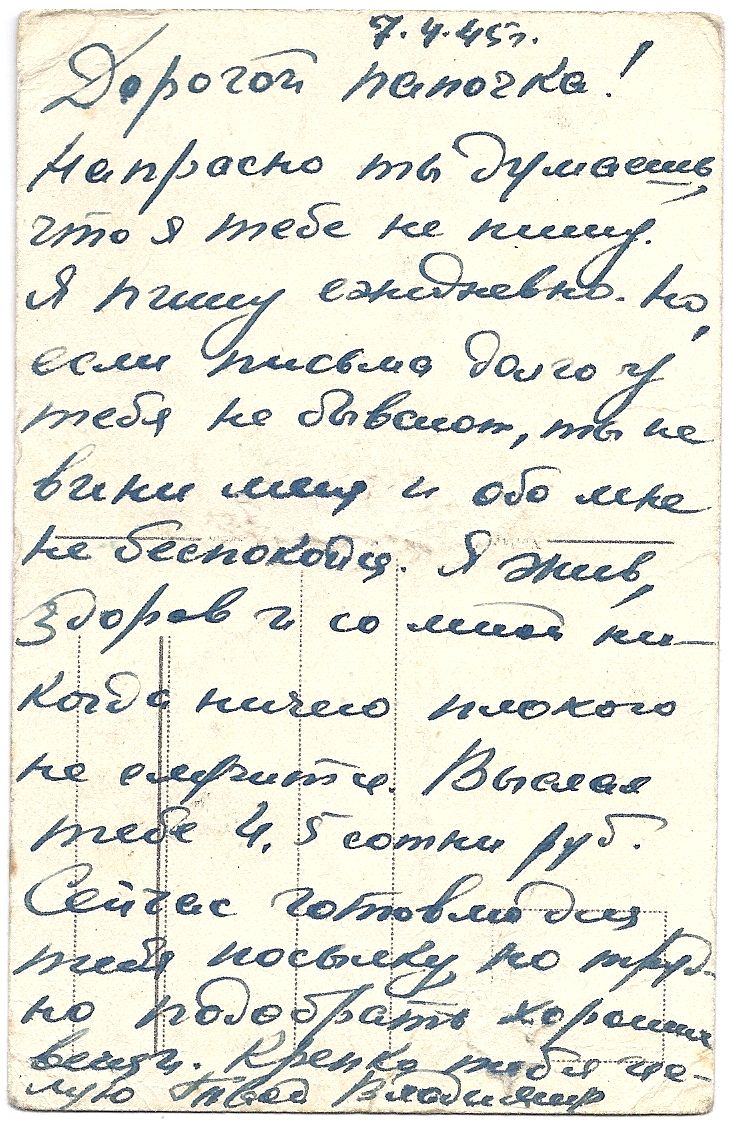 7.4.45г.
Дорогой папочка!
Напрасно ты думаешь,
что я тебе не пишу.
Я пишу ежедневно. Но,
если письма долго у
тебя не бывают, ты не
вини меня и обо мне
не беспокойся. Я жив,
здоров и со мной ни-
когда ничего плохого
не случится. Выслал
тебе 4,5 сотни руб.
Сейчас готовлю для
тебя посылку, но труд-
но подобрать хорошие
вещи. Крепко тебя це-
лую Твой Владимир